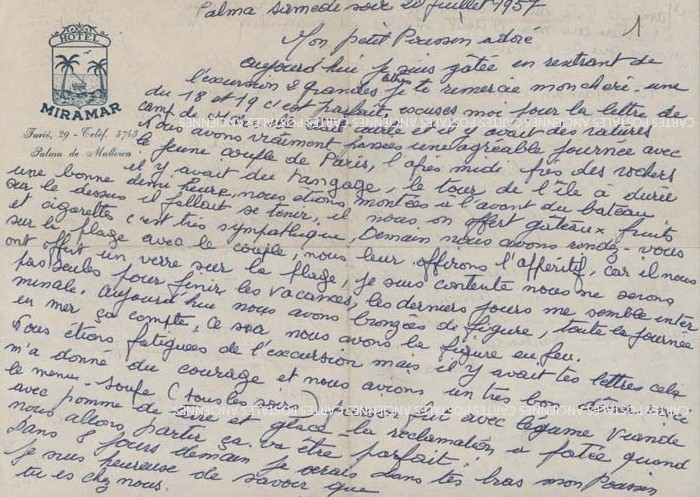 Palma samedi soir 20 juillet 1957
1
HOTEL
MIRAMAR
Turió, 29 - Teléf. 4743
Palma de Mallorca
Mon petit Poussin adoré
aujourd'hui je suis gâtée en rentrant de
l'excursion 2 grandes je te remercie mon chéri - une
du 18 et 19 c'est parfait excuses moi pour la lettre du
camp de
et il y avait des ratures
Nous avons vraiment passées une agréable journée avec
le jeune couple de Paris, l'après midi près des rochers
il y avait du tangage, le tour de l'île à durée
une bonne demi heure, nous étions montées à l'avant du bateau
sur le dessus il fallait se tenir, il nous on offert gâteaux fruits
et cigarettes c'est très sympathique, Demain nous avons rendez-vous
sur la plage avec le couple, nous leur offrirons l'apéritif, car il nous
ont offert un verre sur la plage, je suis contente nous ne serons
pas seules pour finir les vacances, les derniers jours me semble inter
minable. aujourd'hui nous avons bronzées de figure, toute la journée
en mer ça compte, ce soir nous avons la figure en feu.
Nous étions fatiguées de l'excursion mais il y avait tes lettres cela
m'a donné du courage et nous avions un très bon dîner voici
le menu - soupe (tous les soirs) avec légume viande
avec pomme de terre et glace - la réclamation a
quand
nous allons partir ça va être parfait!!
Dans 8 jours demain je serais dans tes bras mon Poussin
je suis heureuse de savoir que
tu es chez nous.
CARTES POSTALES ANCIENNES CARTES POSTALES ANCIENNES
CARTES POSTALES ANCIENNES CARTES POSTALES ANCIENNES